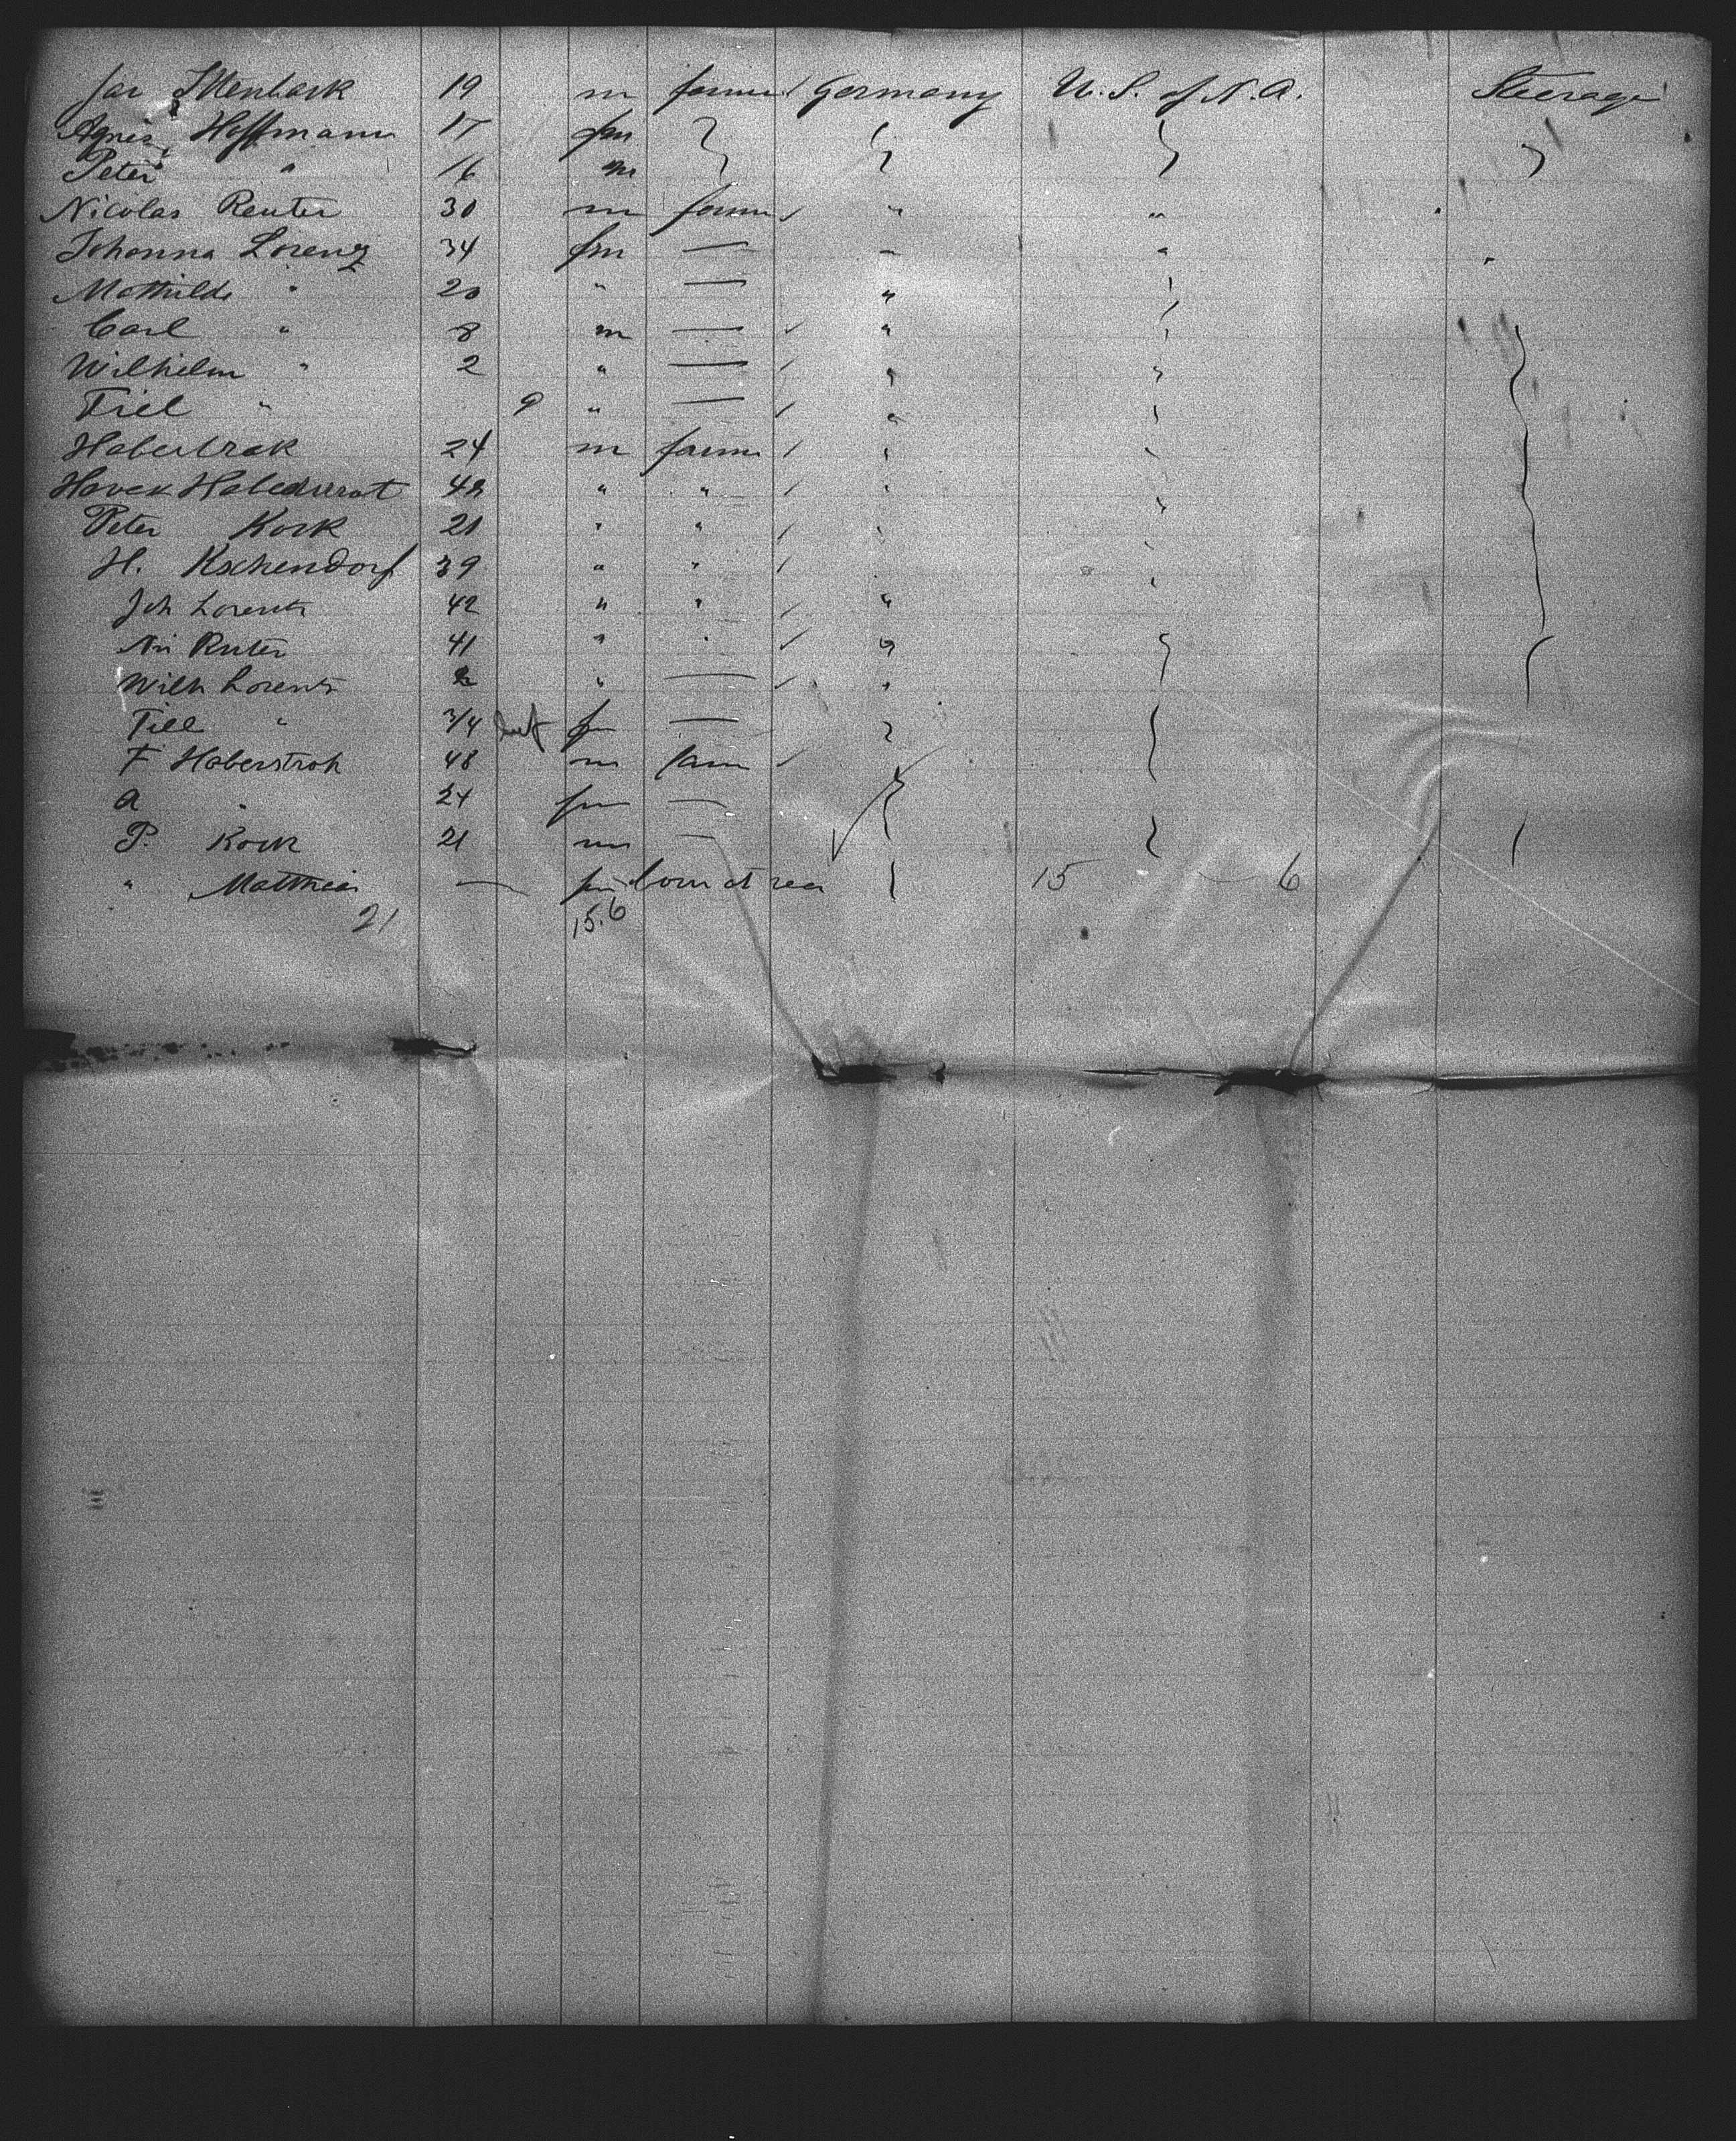 Jac Ittenbach 19 m farmer Germany U. S. of N. A. Steerage
Agnes Hoffmann 17 fm
Peter " 16 m
Nicolas Reuter 30 m farm " "
Johanna Lorenz 34 fm — " "
Mathilde " 20 " — "
Carl " 8 m — "
Wilhelm " 2 " — "
Tiel " 9 " — "
24 m farm "
Havek 42 " " "
Peter Kock 21 " "
H. Kschendorf 39 " "
Joh Lorentz 42 " " "
Ni Ruter 41 " " "
Wilh Lorentz 2 " — "
Till " 3/4 inf fm —
F Haberstroh 48 m farm
A " 24 fm —
P. Kock 21 m —
" Matthias — fm born at sea 15 6
21 15.6